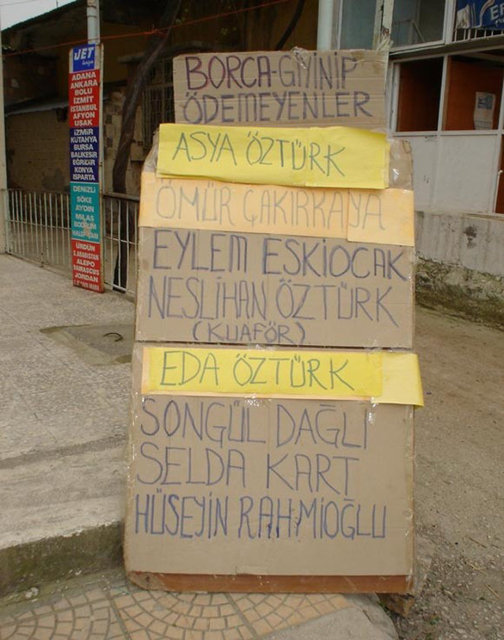 BORCA-GİYİNİP
ÖDEMEYENLER
ASYA ÖZTÜRK
ÖMÜR ÇAKIRKAYA
EYLEM ESKİOCAK
NESLİHAN ÖZTÜRK
(KUAFÖR)
EDA ÖZTÜRK
SONGÜL DAĞLI
SELDA KART
HÜSEYİN RAHMİOĞLU
JET
ADANA
ANKARA
BOLU
İZMİT
İSTANBUL
AFYON
UŞAK
İZMİR
KÜTAHYA
BURSA
BALIKESİR
EĞİRDİR
KONYA
ISPARTA
DENİZLİ
SÖKE
AYDIN
MİLAS
BODRUM
ALEPO
DAMASCUS
JORDAN